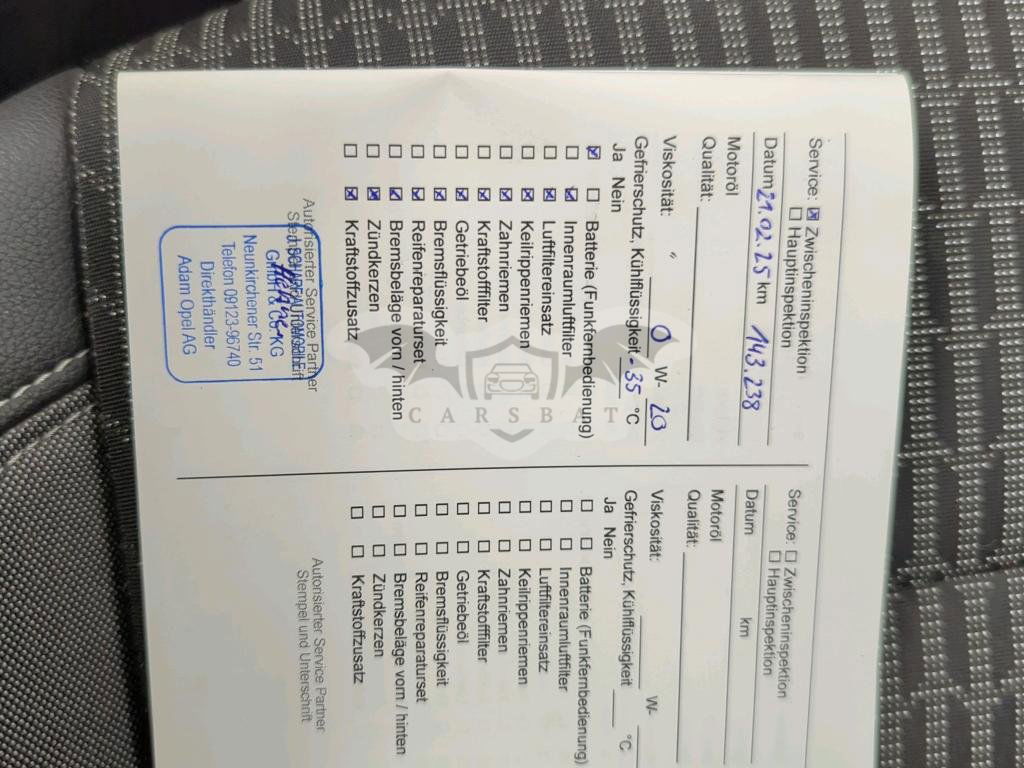 Service: ☒ Zwischeninspektion
☐ Hauptinspektion
Datum 21.02.25 km 143.238
Motoröl
Qualität:
Viskosität: " 0 W- 20
Gefrierschutz, Kühlflüssigkeit -35 °C
Ja Nein
☒ ☐ Batterie (Funkfernbedienung)
☐ ☒ Innenraumluftfilter
☐ ☒ Luftfiltereinsatz
☐ ☒ Keilrippenriemen
☐ ☒ Zahnriemen
☐ ☒ Kraftstofffilter
☐ ☒ Getriebeöl
☐ ☒ Bremsflüssigkeit
☐ ☒ Reifenreparaturset
☐ ☒ Bremsbeläge vorn / hinten
☐ ☒ Zündkerzen
☐ ☒ Kraftstoffzusatz
Autorisierter Service Partner
Neunkirchener Str. 51
Telefon 09123-96740
Direkthändler
Adam Opel AG
Service: ☐ Zwischeninspektion
☐ Hauptinspektion
Datum km
Motoröl
Qualität:
Viskosität: W-
Gefrierschutz, Kühlflüssigkeit °C
Ja Nein
☐ ☐ Batterie (Funkfernbedienung)
☐ ☐ Innenraumluftfilter
☐ ☐ Luftfiltereinsatz
☐ ☐ Keilrippenriemen
☐ ☐ Zahnriemen
☐ ☐ Kraftstofffilter
☐ ☐ Getriebeöl
☐ ☐ Bremsflüssigkeit
☐ ☐ Reifenreparaturset
☐ ☐ Bremsbeläge vorn / hinten
☐ ☐ Zündkerzen
☐ ☐ Kraftstoffzusatz
Autorisierter Service Partner
Stempel und Unterschrift
CARSBAT